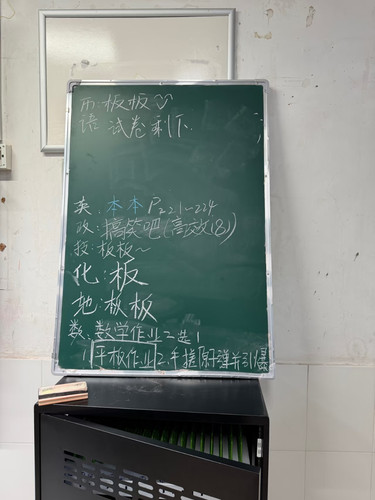 历:板板
语 试卷剩下.
英:本本 P221~224
政:搞笑吧(高效(8))
技:板板~
化:板
地:板板
数:数学作业二选1
1.平板作业 2.手搓原子弹并引爆